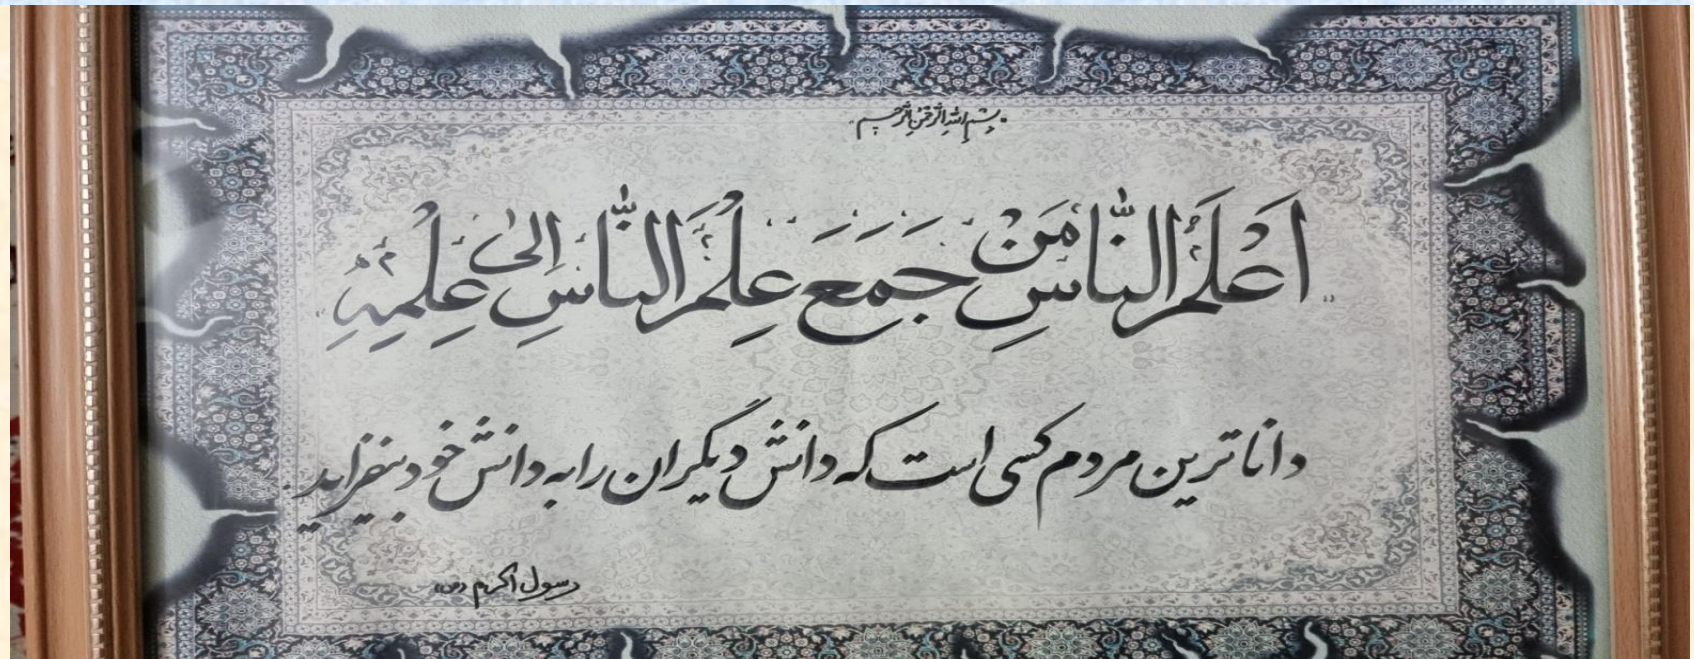 بِسْمِ اللهِ الرَّحْمٰنِ الرَّحیم
«اَعْلَمُ النّاسِ مَنْ جَمَعَ عِلْمَ النّاسِ اِلیٰ عِلْمِهِ»
داناترین مردم کسی است که دانش دیگران را به دانش خود بیفزاید
رسول اکرم (ص)